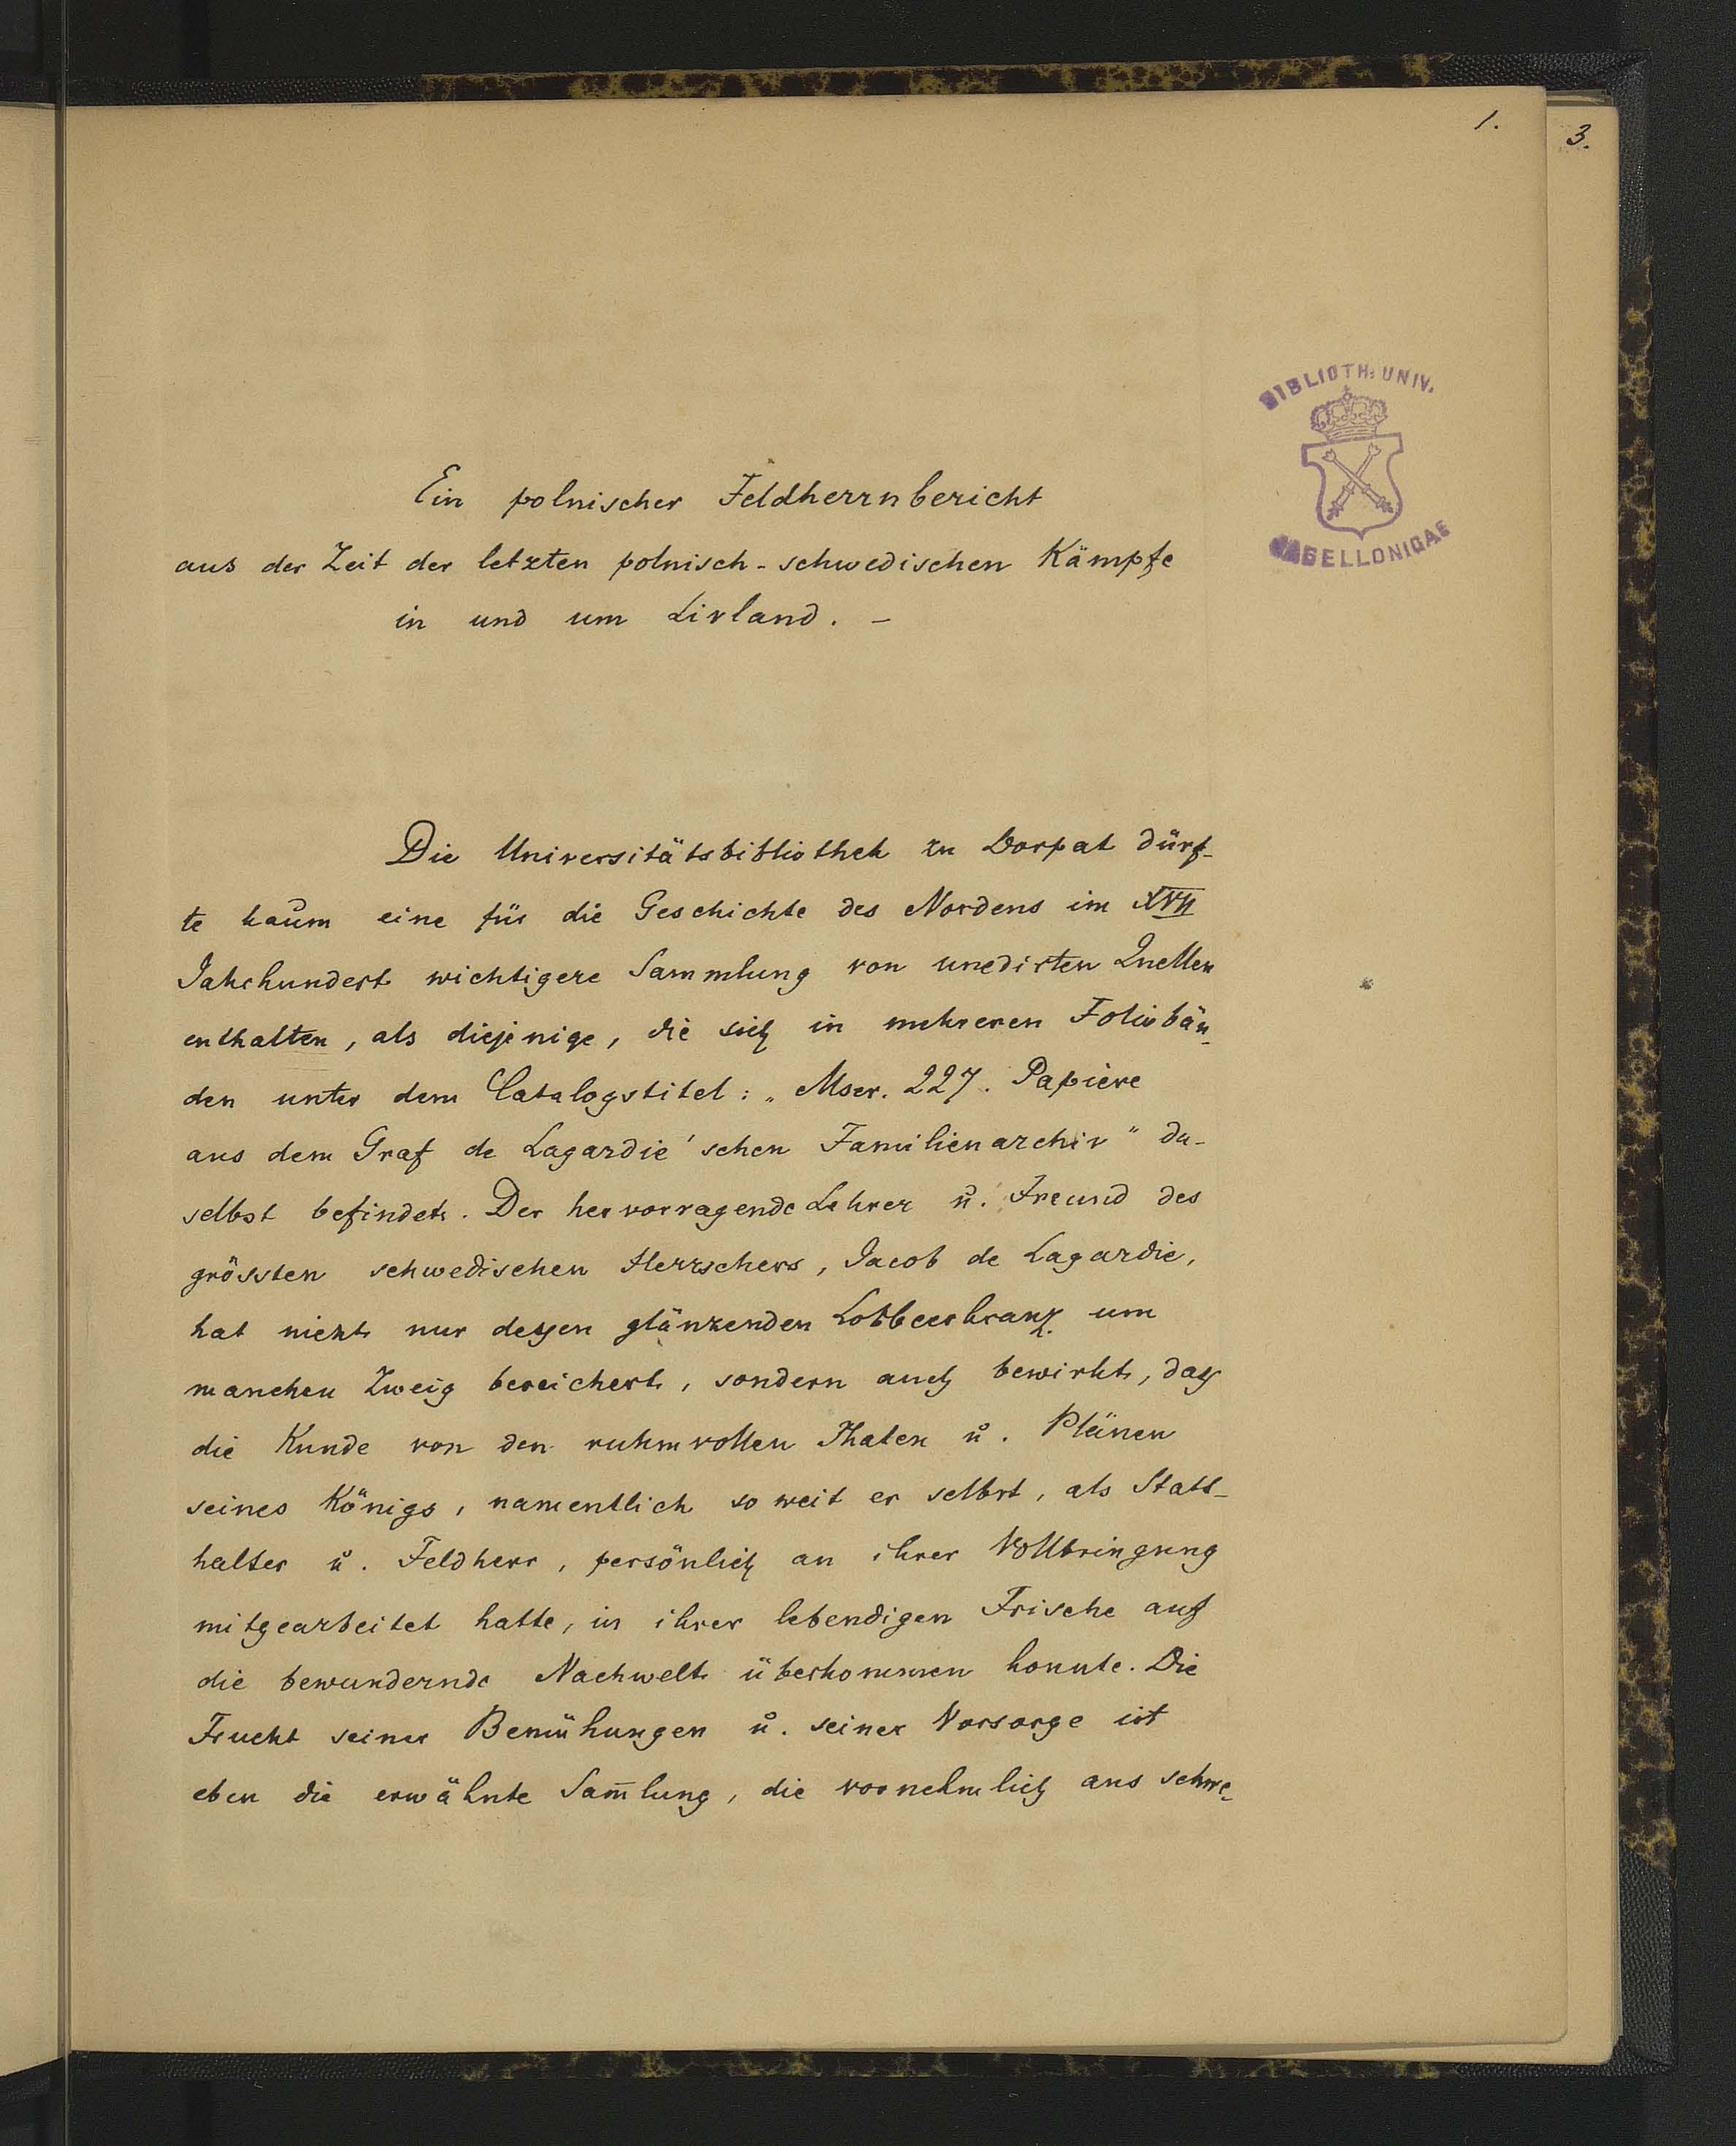 1.
3.
BIBLIOTH: UNIV.
JAGELLONICAE
Ein polnischer Feldherrnbericht
aus der Zeit der letzten polnisch-schwedischen Kämpfe
in und um Livland. –
Die Universitätsbibliothek zu Dorpat dürf-
te kaum eine für die Geschichte des Nordens im XVII
Jahrhundert wichtigere Sammlung von unedirten Quellen
enthalten, als diejenige, die sich in mehreren Foliobän-
den unter dem Catalogstitel: „Mscr. 227. Papiere
aus dem Graf de Lagardie'schen Familienarchiv" da-
selbst befindet. Der hervorragende Lehrer u. Freund des
grössten schwedischen Herrschers, Jacob de Lagardie,
hat nicht nur dessen glänzenden Lorbeerkranz um
manchen Zweig bereichert, sondern auch bewirkt, dass
die Kunde von den ruhmvollen Thaten u. Plänen
seines Königs, namentlich so weit er selbst, als Statt-
halter u. Feldherr, persönlich an ihrer Vollbringung
mitgearbeitet hatte, in ihrer lebendigen Frische auf
die bewundernde Nachwelt überkommen konnte. Die
Frucht seiner Bemühungen u. seiner Vorsorge ist
eben die erwähnte Sam̄lung, die vornehmlich aus schwe-